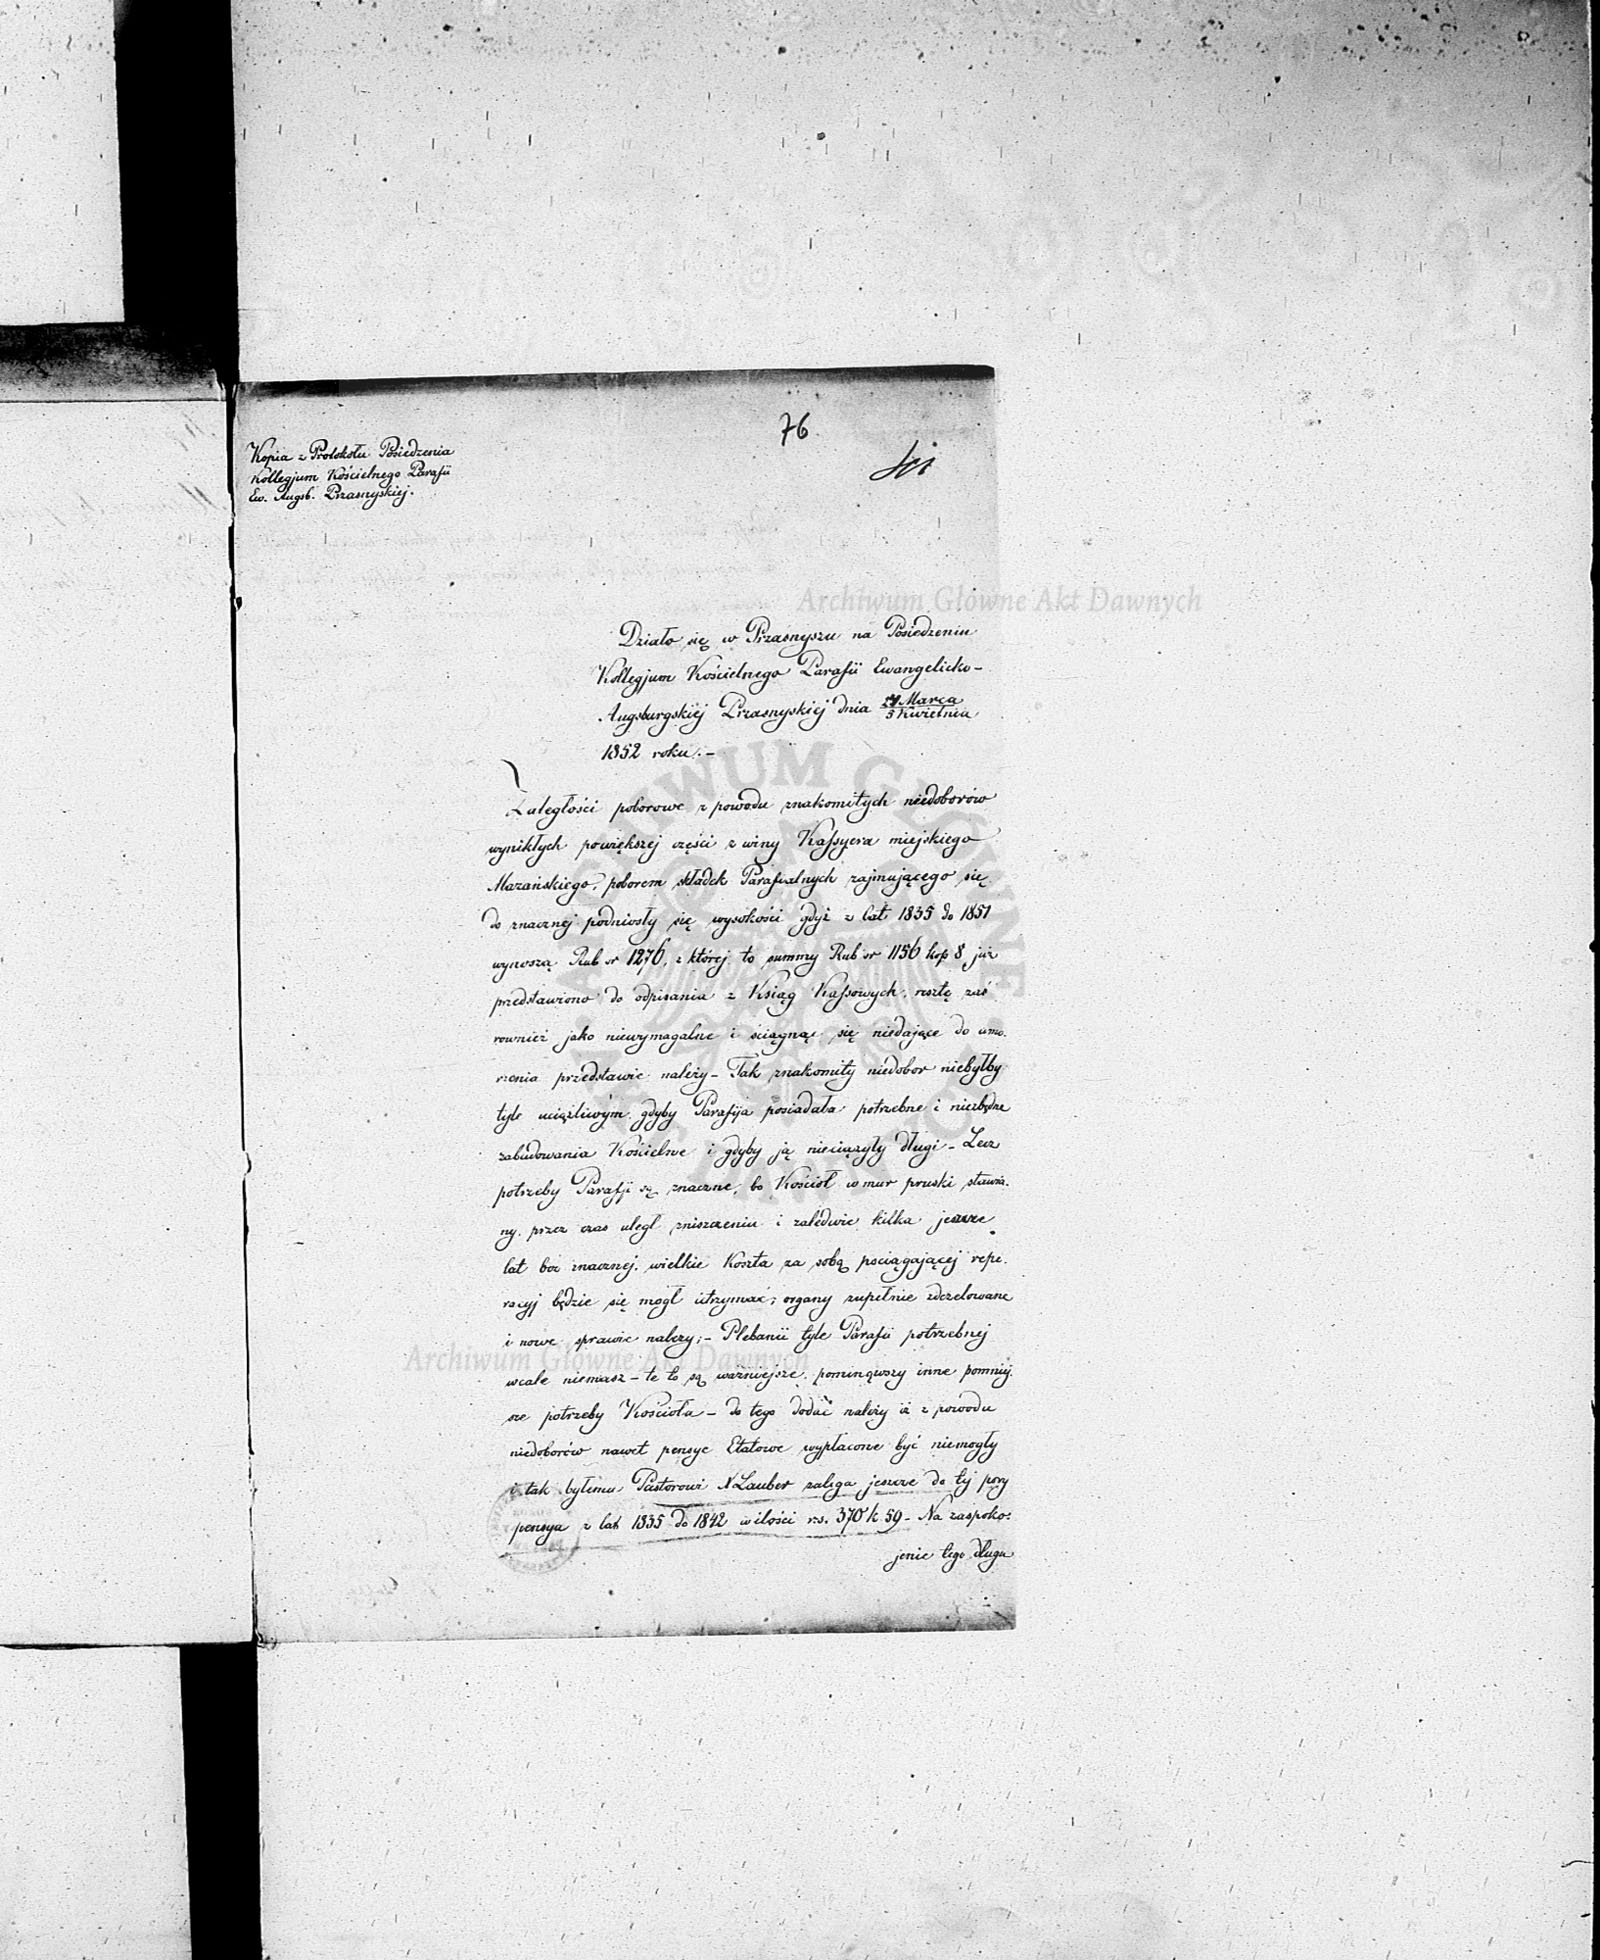 76
Kopia z Protokołu Posiedzenia
Kollegjum Kościelnego Parafii
Ew. Augsb. Przasnyskiej.
Archiwum Główne Akt Dawnych
Działo się w Przasnyszu na Posiedzeniu
Kollegjum Kościelnego Parafii Ewangelicko-
Augsburgskiej Przasnyskiej dnia Marca
5 Kwietnia
1852 roku.-
Zaległości poborowe z powodu znakomitych niedoborów
wynikłych powiększej części z winy Kassyera miejskiego
Mazańskiego, poborem składek Parafialnych zajmującego się
do znacznej podniosły się wysokości gdyż z lat 1835 do 1851
wynoszą Rub sr 1276, z której to summy Rub sr 1156 kop 8 już
przedstawiono do odpisania z Ksiąg Kassowych, resztę zaś
rownież jako niewymagalne i ściągnąć się niedające do umo.
rzenia przedstawić należy - Tak znakomity niedobor niebyłby
tyle uciążliwym gdyby Parafija posiadała potrzebne i niezbędne
zabudowania Kościelne i gdyby ją nieciążyły długi - Lecz
potrzeby Parafji są znaczne, bo Kościoł w mur pruski stawia.
ny, przez czas uległ zniszczeniu i zaledwie kilka jeszcze
lat bez znacznej, wielkie Koszta za sobą pociągającej repe.
racyj będzie się mogł utrzymać; organy zupełnie zdezelowane
i nowe sprawić należy; - Plebanii tyle Parafii potrzebnej
Archiwum Główne Akt Dawnych
wcale niemasz - te to są ważniejsze, pominąwszy inne pomniej.
sze potrzeby Kościoła - do tego dodać należy iż z powodu
niedoborów nawet pensye Etatowe wypłacone być niemogły
i tak byłemu Pastorowi Lauber zalega jeszcze do tej pory
pensya z lat 1835 do 1842 w ilości rs. 370 k 59 - Na zaspoko:
jenie tego długu